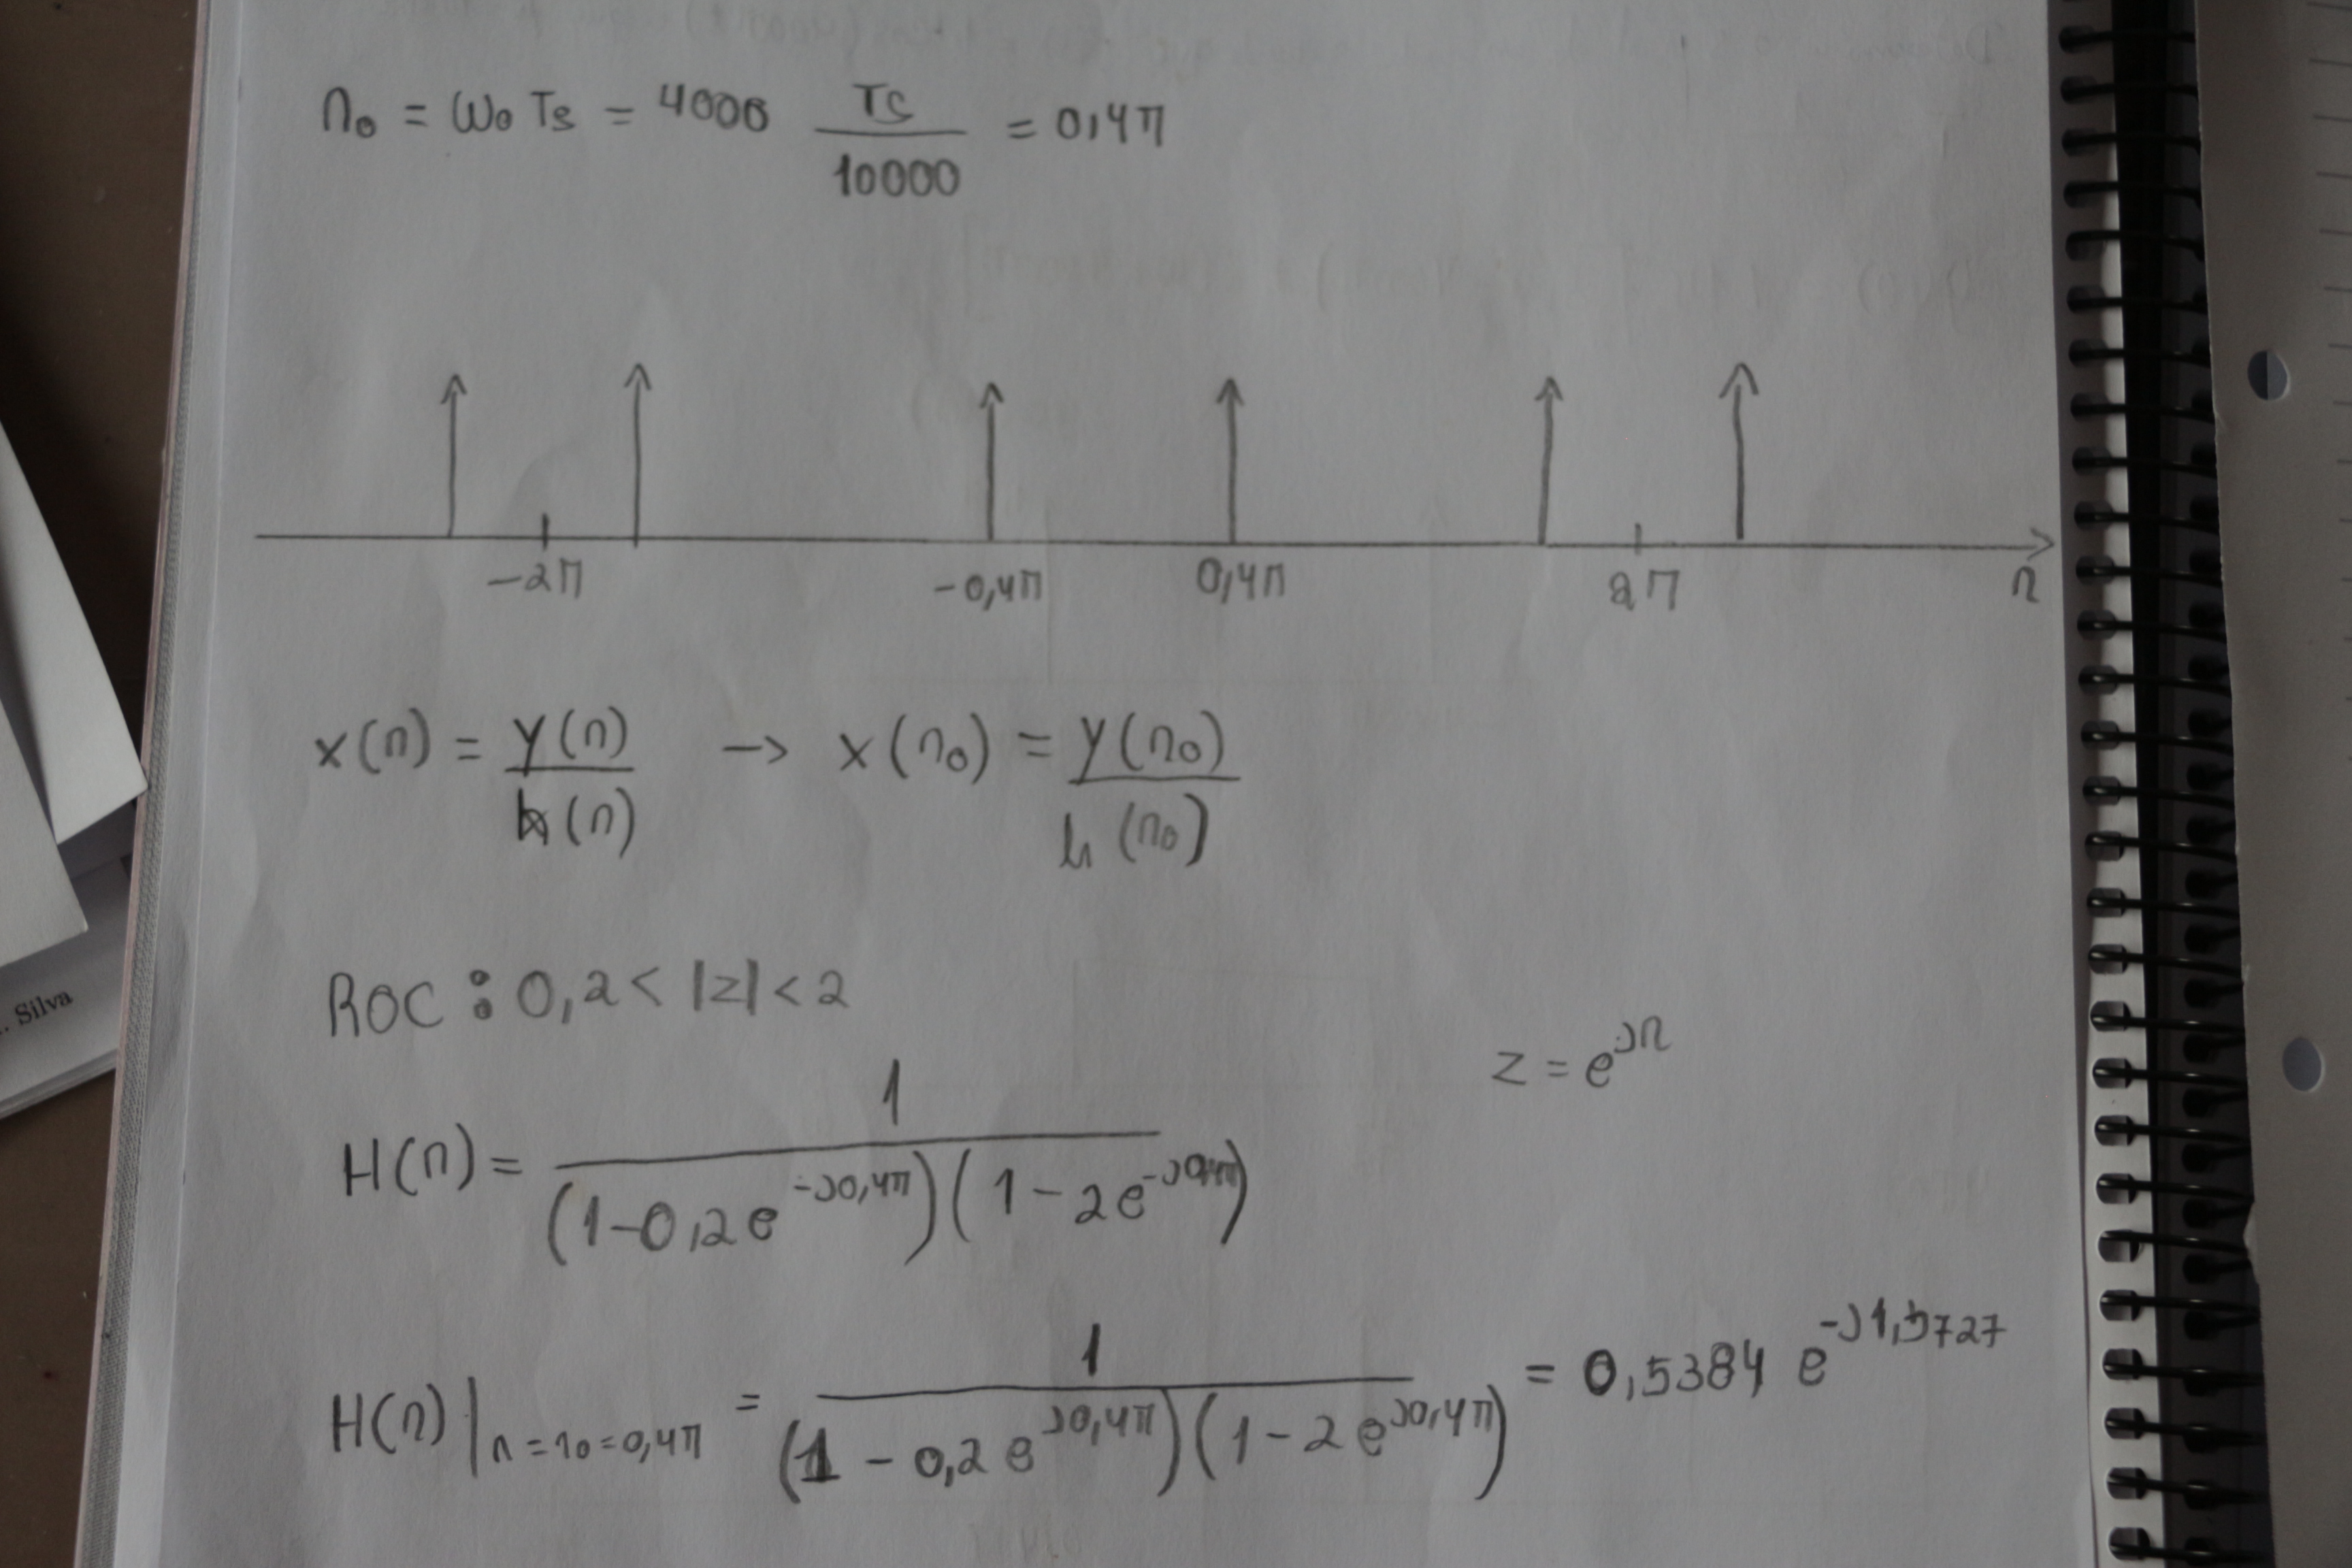 n₀ = ω₀ Ts = 4000 Ts/10000 = 0,4π
-2π -0,4π 0,4π 2π n
x(n) = y(n)/h(n) -> x(n₀) = y(n₀)/h(n₀)
ROC : 0,2 < |z| < 2
z = e^{jn}
H(n) = 1/((1-0,2e^{-j0,4π})(1-2e^{-j0,4π}))
H(n)|_{n=n₀=0,4π} = 1/((1-0,2e^{j0,4π})(1-2e^{j0,4π})) = 0,5384 e^{-j1,5727}
. Silva